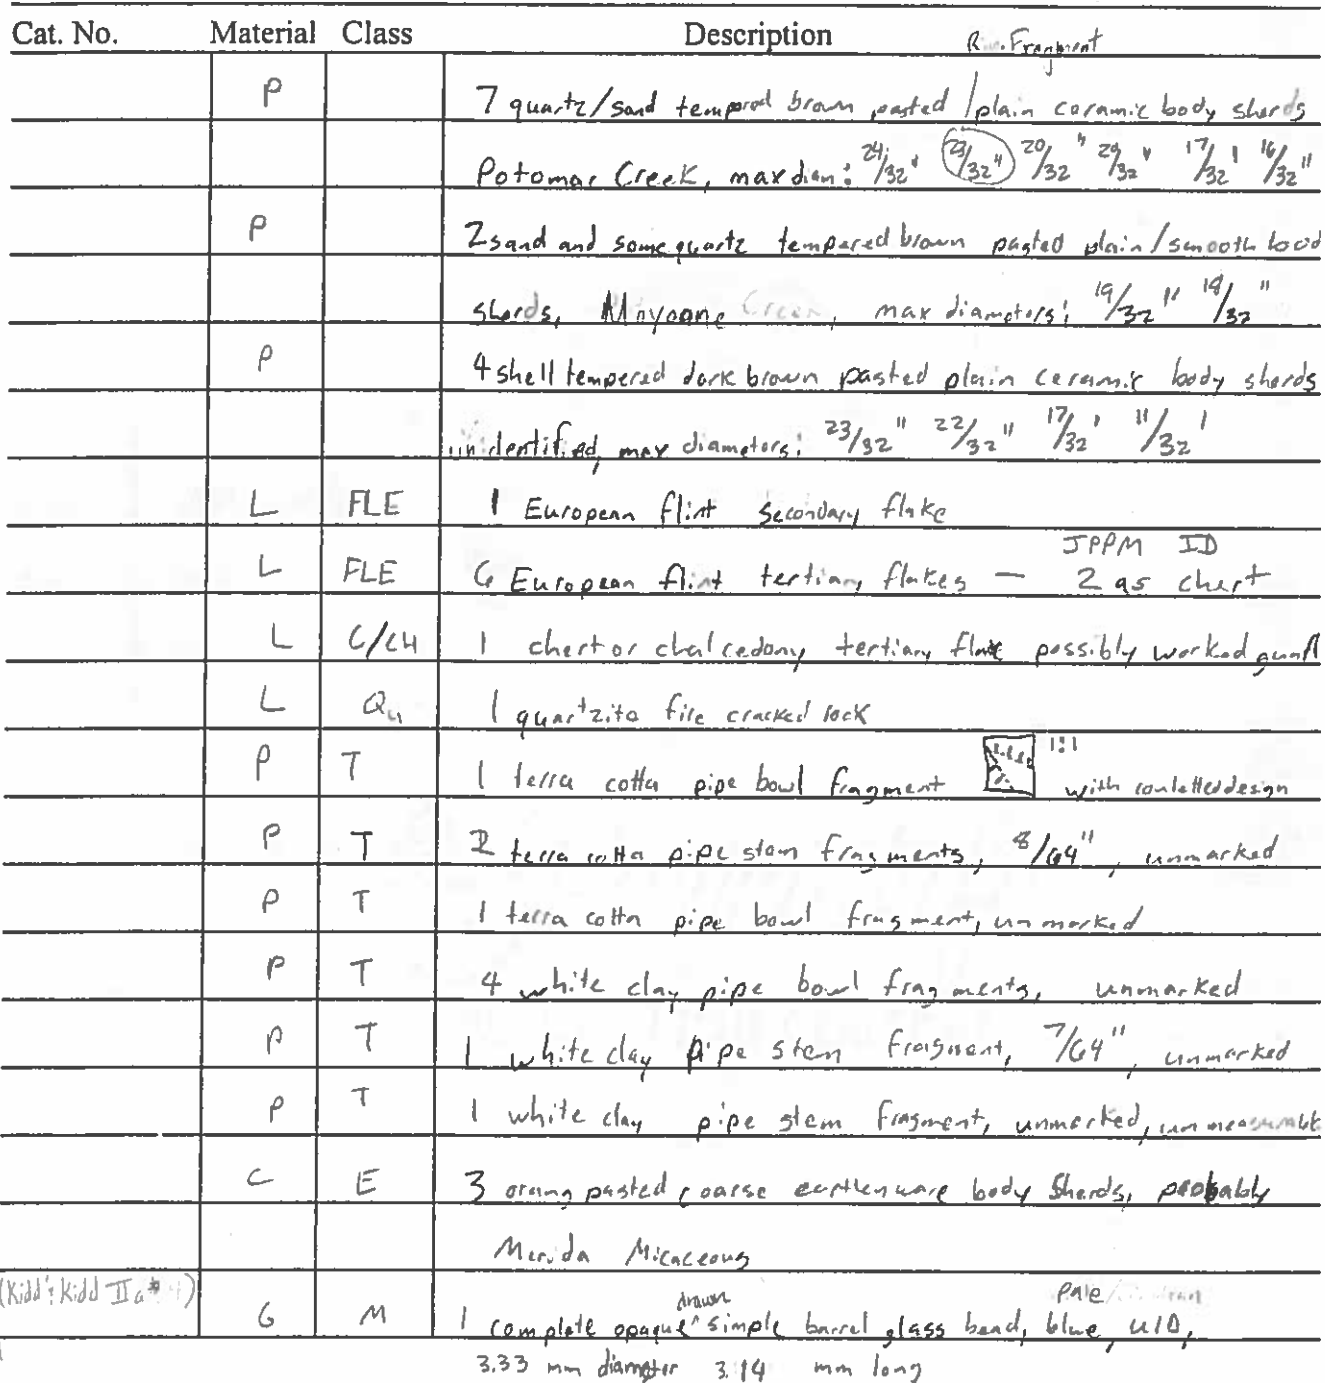 Cat. No. Material Class Description
Rim Fragment
P 7 quartz/sand tempered brown pasted /plain ceramic body sherds
Potomac Creek, max diam: 24/32" 23/32" 20/32" 20/32" 17/32" 16/32"
P 2 sand and some quartz tempered brown pasted plain/smooth bod
sherds, Moyaone Creek, max diameters: 19/32" 18/32"
P 4 shell tempered dark brown pasted plain ceramic body sherds
unidentified, max diameters: 23/32" 22/32" 17/32' 11/32'
L FLE 1 European flint secondary flake
JPPM ID
L FLE 6 European flint tertiary flakes — 2 as chert
L C/CH 1 chert or chalcedony tertiary flake possibly worked gunfl
L Qu 1 quartzite fire cracked rock
P T 1 terra cotta pipe bowl fragment 1:1 with rouletted design
P T 2 terra cotta pipe stem fragments, 8/64", unmarked
P T 1 terra cotta pipe bowl fragment, unmarked
P T 4 white clay pipe bowl fragments, unmarked
P T 1 white clay pipe stem fragment, 7/64", unmarked
P T 1 white clay pipe stem fragment, unmarked, unmeasurable
C E 3 orang pasted coarse earthenware body sherds, probably
Merida Micaceous
(Kidd & Kidd IIa# drawn pale
G M 1 complete opaque ^ simple barrel glass bead, blue, UID,
3.33 mm diameter 3.14 mm long